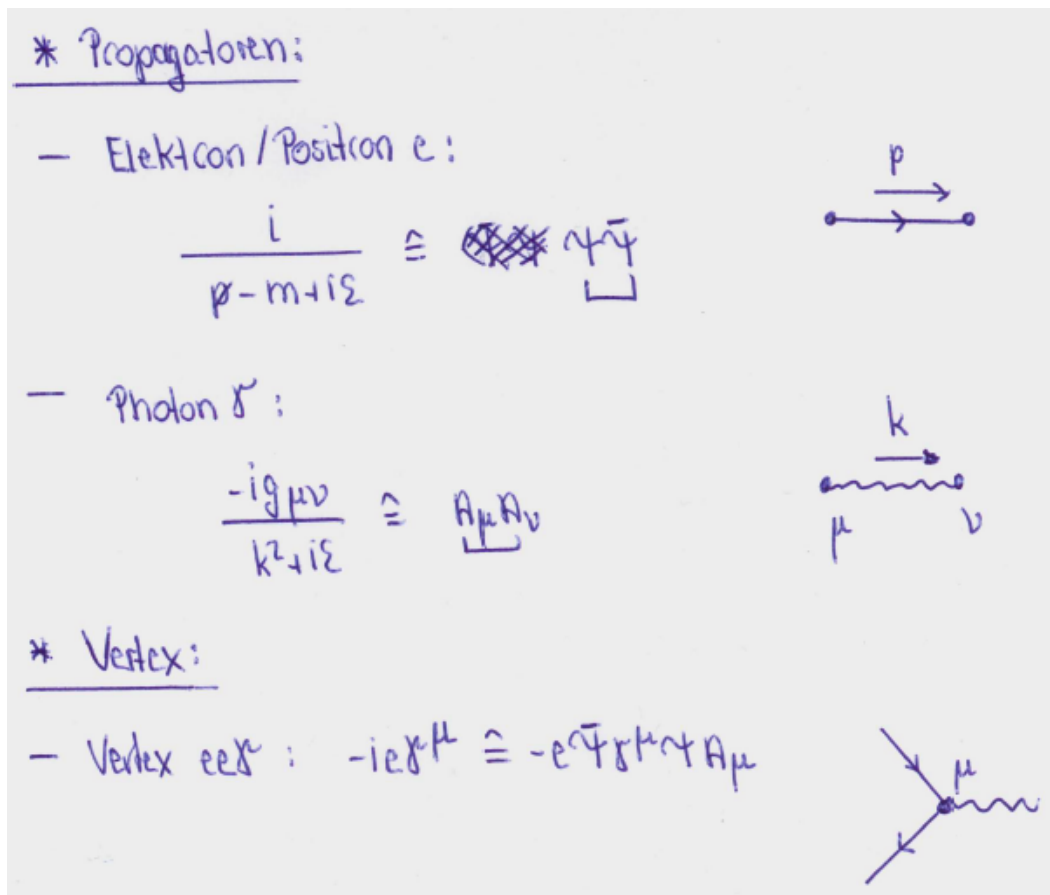 * Propagatoren:
– Elektron/Positron e:
p
i
p̸ - m + iε ≙ ψψ̄
– Photon γ:
k
-i g μν
k² + iε ≙ A_μ A_ν
μ ν
* Vertex:
– Vertex eeγ : -ieγ^μ ≙ -eψ̄γ^μψA_μ
μ